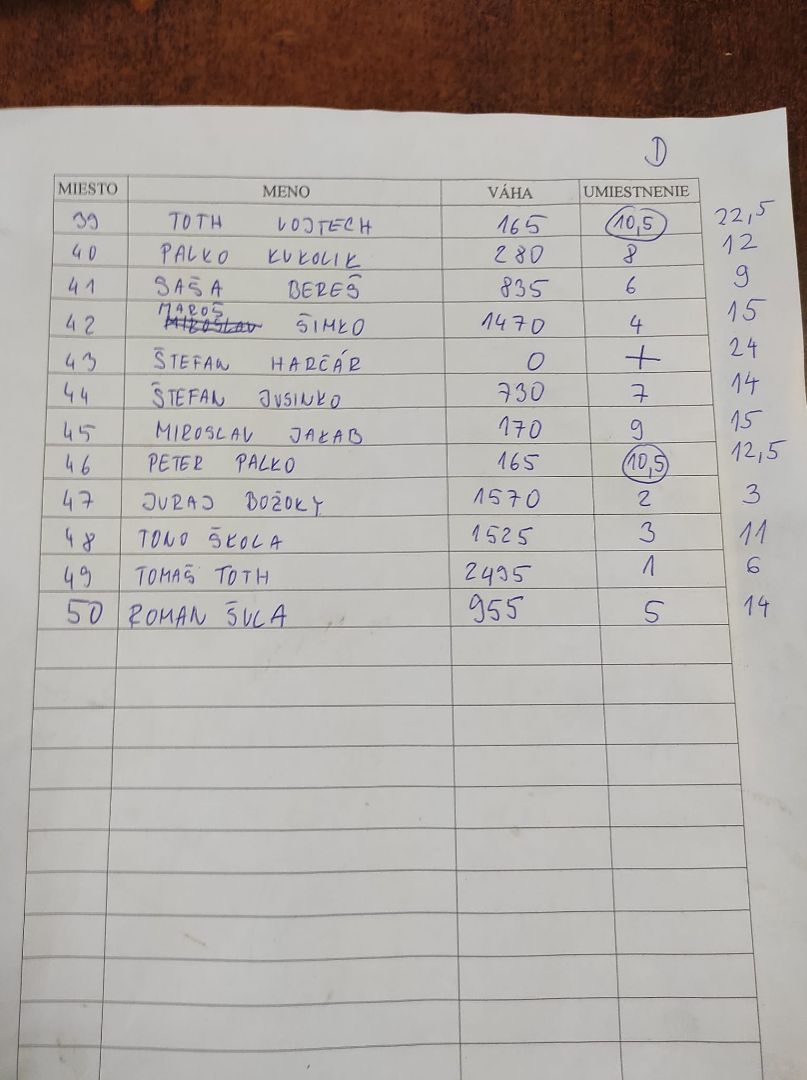 D
MIESTO MENO VÁHA UMIESTNENIE
39 TOTH VOJTECH 165 10,5 22,5
40 PALKO KUKOLIK 280 8 12
41 SAŠA BEREŠ 835 6 9
MAROŠ
42 MIROSLAV ŠIMKO 1470 4 15
43 ŠTEFAN HARČÁR 0 + 24
44 ŠTEFAN JUSINKO 730 7 14
45 MIROSLAV JAKAB 170 9 15
46 PETER PALKO 165 10,5 12,5
47 JURAJ BOŽOKY 1570 2 3
48 TONO ŠKOLA 1525 3 11
49 TOMAŠ TOTH 2495 1 6
50 ROMAN ŠULA 955 5 14